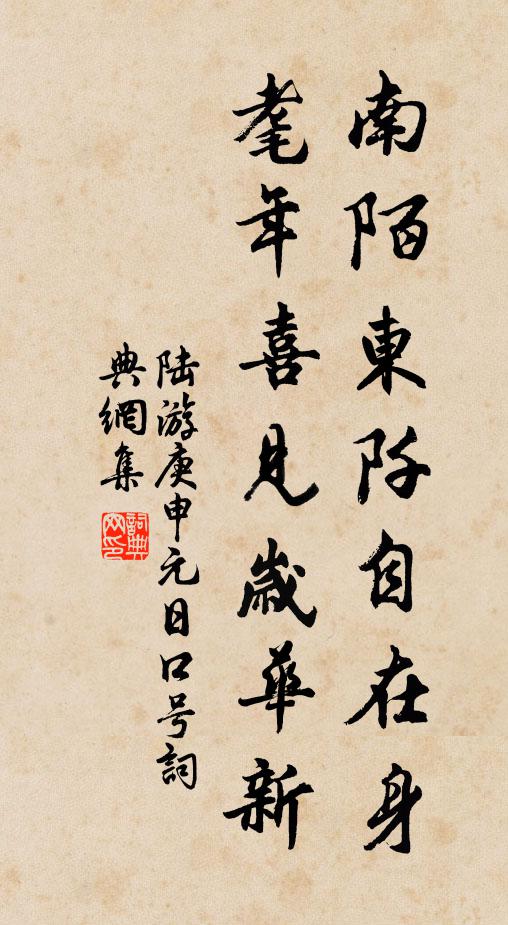 南陌東阡自在身
耄年喜見歲華新
陸游庚申元日口号詞
典網集
詞典網印